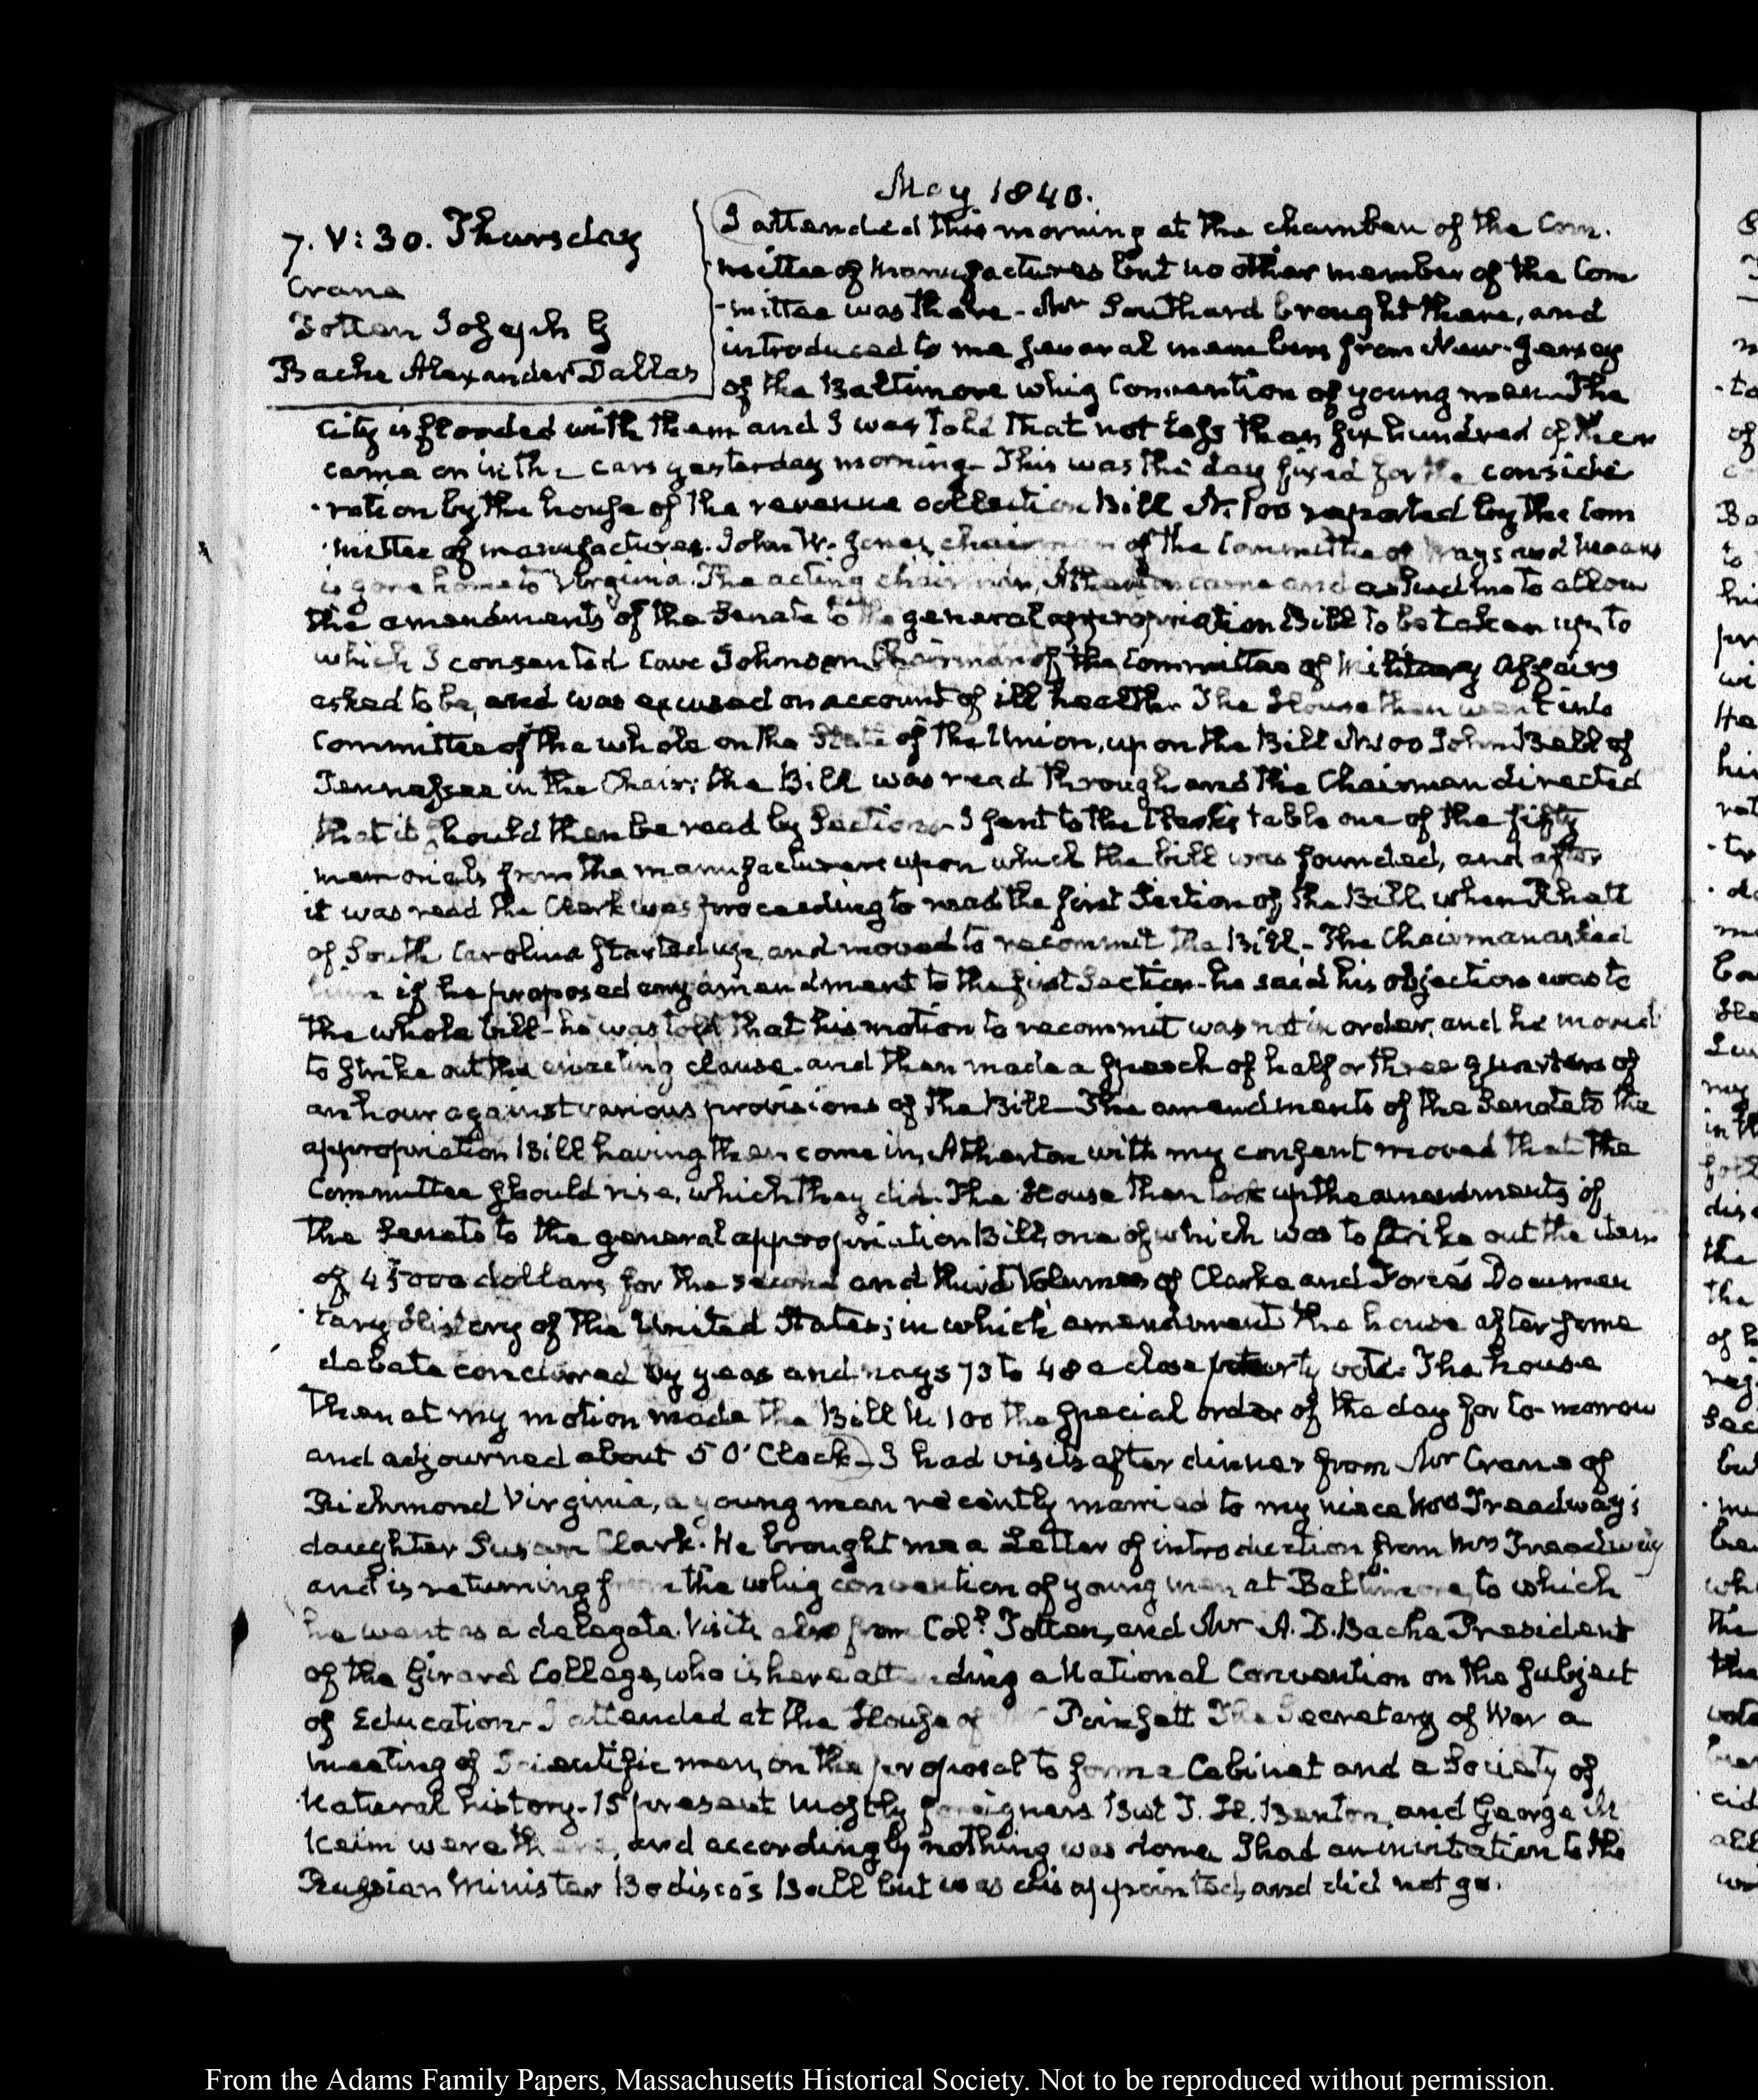 May 1840.
7. V: 30. Thursday
Crane
Totten Joseph G
Bache Alexander Dallas
I attended this morning at the chamber of the Com-
mittee of Manufactures but no other member of the Com
-mittee was there - Mr Southard brought there, and
introduced to me several members from New-Jersey
of the Baltimore whig Convention of young men - The
City is flooded with them and I was told that not less than six hundred of them
came on in the cars yesterday morning - This was the day fixed for the conside
-ration by the house of the revenue collection Bill N. 100 reported by the Com
-mittee of manufactures. John W. Jones, chairman of the Committee of Ways and Means
is gone home to Virginia. The acting chairman, Atherton came and asked me to allow
the amendments of the Senate to the general appropriation Bill to be taken up, to
which I consented Cave Johnson Chairman of the Committee of Military Affairs
asked to be, and was excused on account of ill health. The House then went into
Committee of the whole on the State of the Union, upon the Bill N. 100 John Bell of
Tennessee in the Chair; the Bill was read through and the Chairman directed
that it should then be read by Sections - I sent to the Clerk's table one of the fifty
memorials from the manufacturers upon which the bill was founded, and after
it was read the Clerk was proceeding to read the first Section of the Bill, when Rhett
of South Carolina started up, and moved to recommit the Bill - The Chairman asked
him if he proposed any amendment to the first Section - he said his objection was to
the whole bill - he was told that his motion to recommit was not in order, and he moved
to strike out the enacting clause - and then made a speech of half or three quarters of
an hour against various provisions of the Bill - The amendments of the Senate to the
appropriation Bill having then come in, Atherton with my consent moved that the
Committee should rise, which they did. The House then took up the amendments of
the Senate to the general appropriation Bill, one of which was to strike out the item
of 45000 dollars for the second and third Volumes of Clarke and Force's Documen
-tary History of the United States; in which amendment the house after some
debate concurred by yeas and nays 73 to 48 a close party vote. The house
then at my motion made the Bill N. 100 the special order of the day for to-morrow
and adjourned about 5 O'Clock - I had visits after dinner from Mr Crane of
Richmond Virginia, a young man recently married to my niece Mrs Treadway's
daughter Susan Clark. He brought me a Letter of introduction from Mrs Treadway
and is returning from the whig convention of young men at Baltimore, to which
he went as a delegate. Visits also from Coll. Totten, and Mr A. D. Bache President
of the Girard College, who is here attending a National Convention on the subject
of Education - I attended at the House of Poinsett The Secretary of War a
meeting of Scientific men, on the proposal to form a Cabinet and a Society of
Natural history - 15 present mostly foreigners But T. H. Benton, and George M
Keim were there, and accordingly nothing was done. I had an invitation to the
Russian Minister Bodisco's Ball but was disappointed, and did not go.
From the Adams Family Papers, Massachusetts Historical Society. Not to be reproduced without permission.